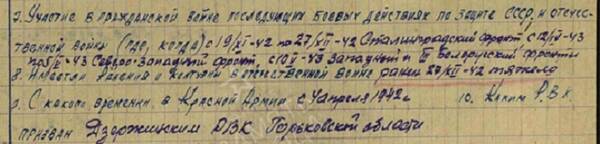 7. Участие в гражданской войне последующих боевых действиях по защите СССР и отечес-
твенной войне (где, когда) с 19/XI-42 по 27/XII-42 Сталинградский фронт с 12/III-43
по 5/IX-43 Северо-Западный фронт, с 10/V-43 Западный и III Белорусский фронты
8. Имеются ранения и контузии в отечественной войне ранен 27/XII-42 тяжело
9. С какого времени в Красной Армии с 4 апреля 1942 г. 10. Каким Р.В.К.
призван Дзержинским РВК Горьковской области